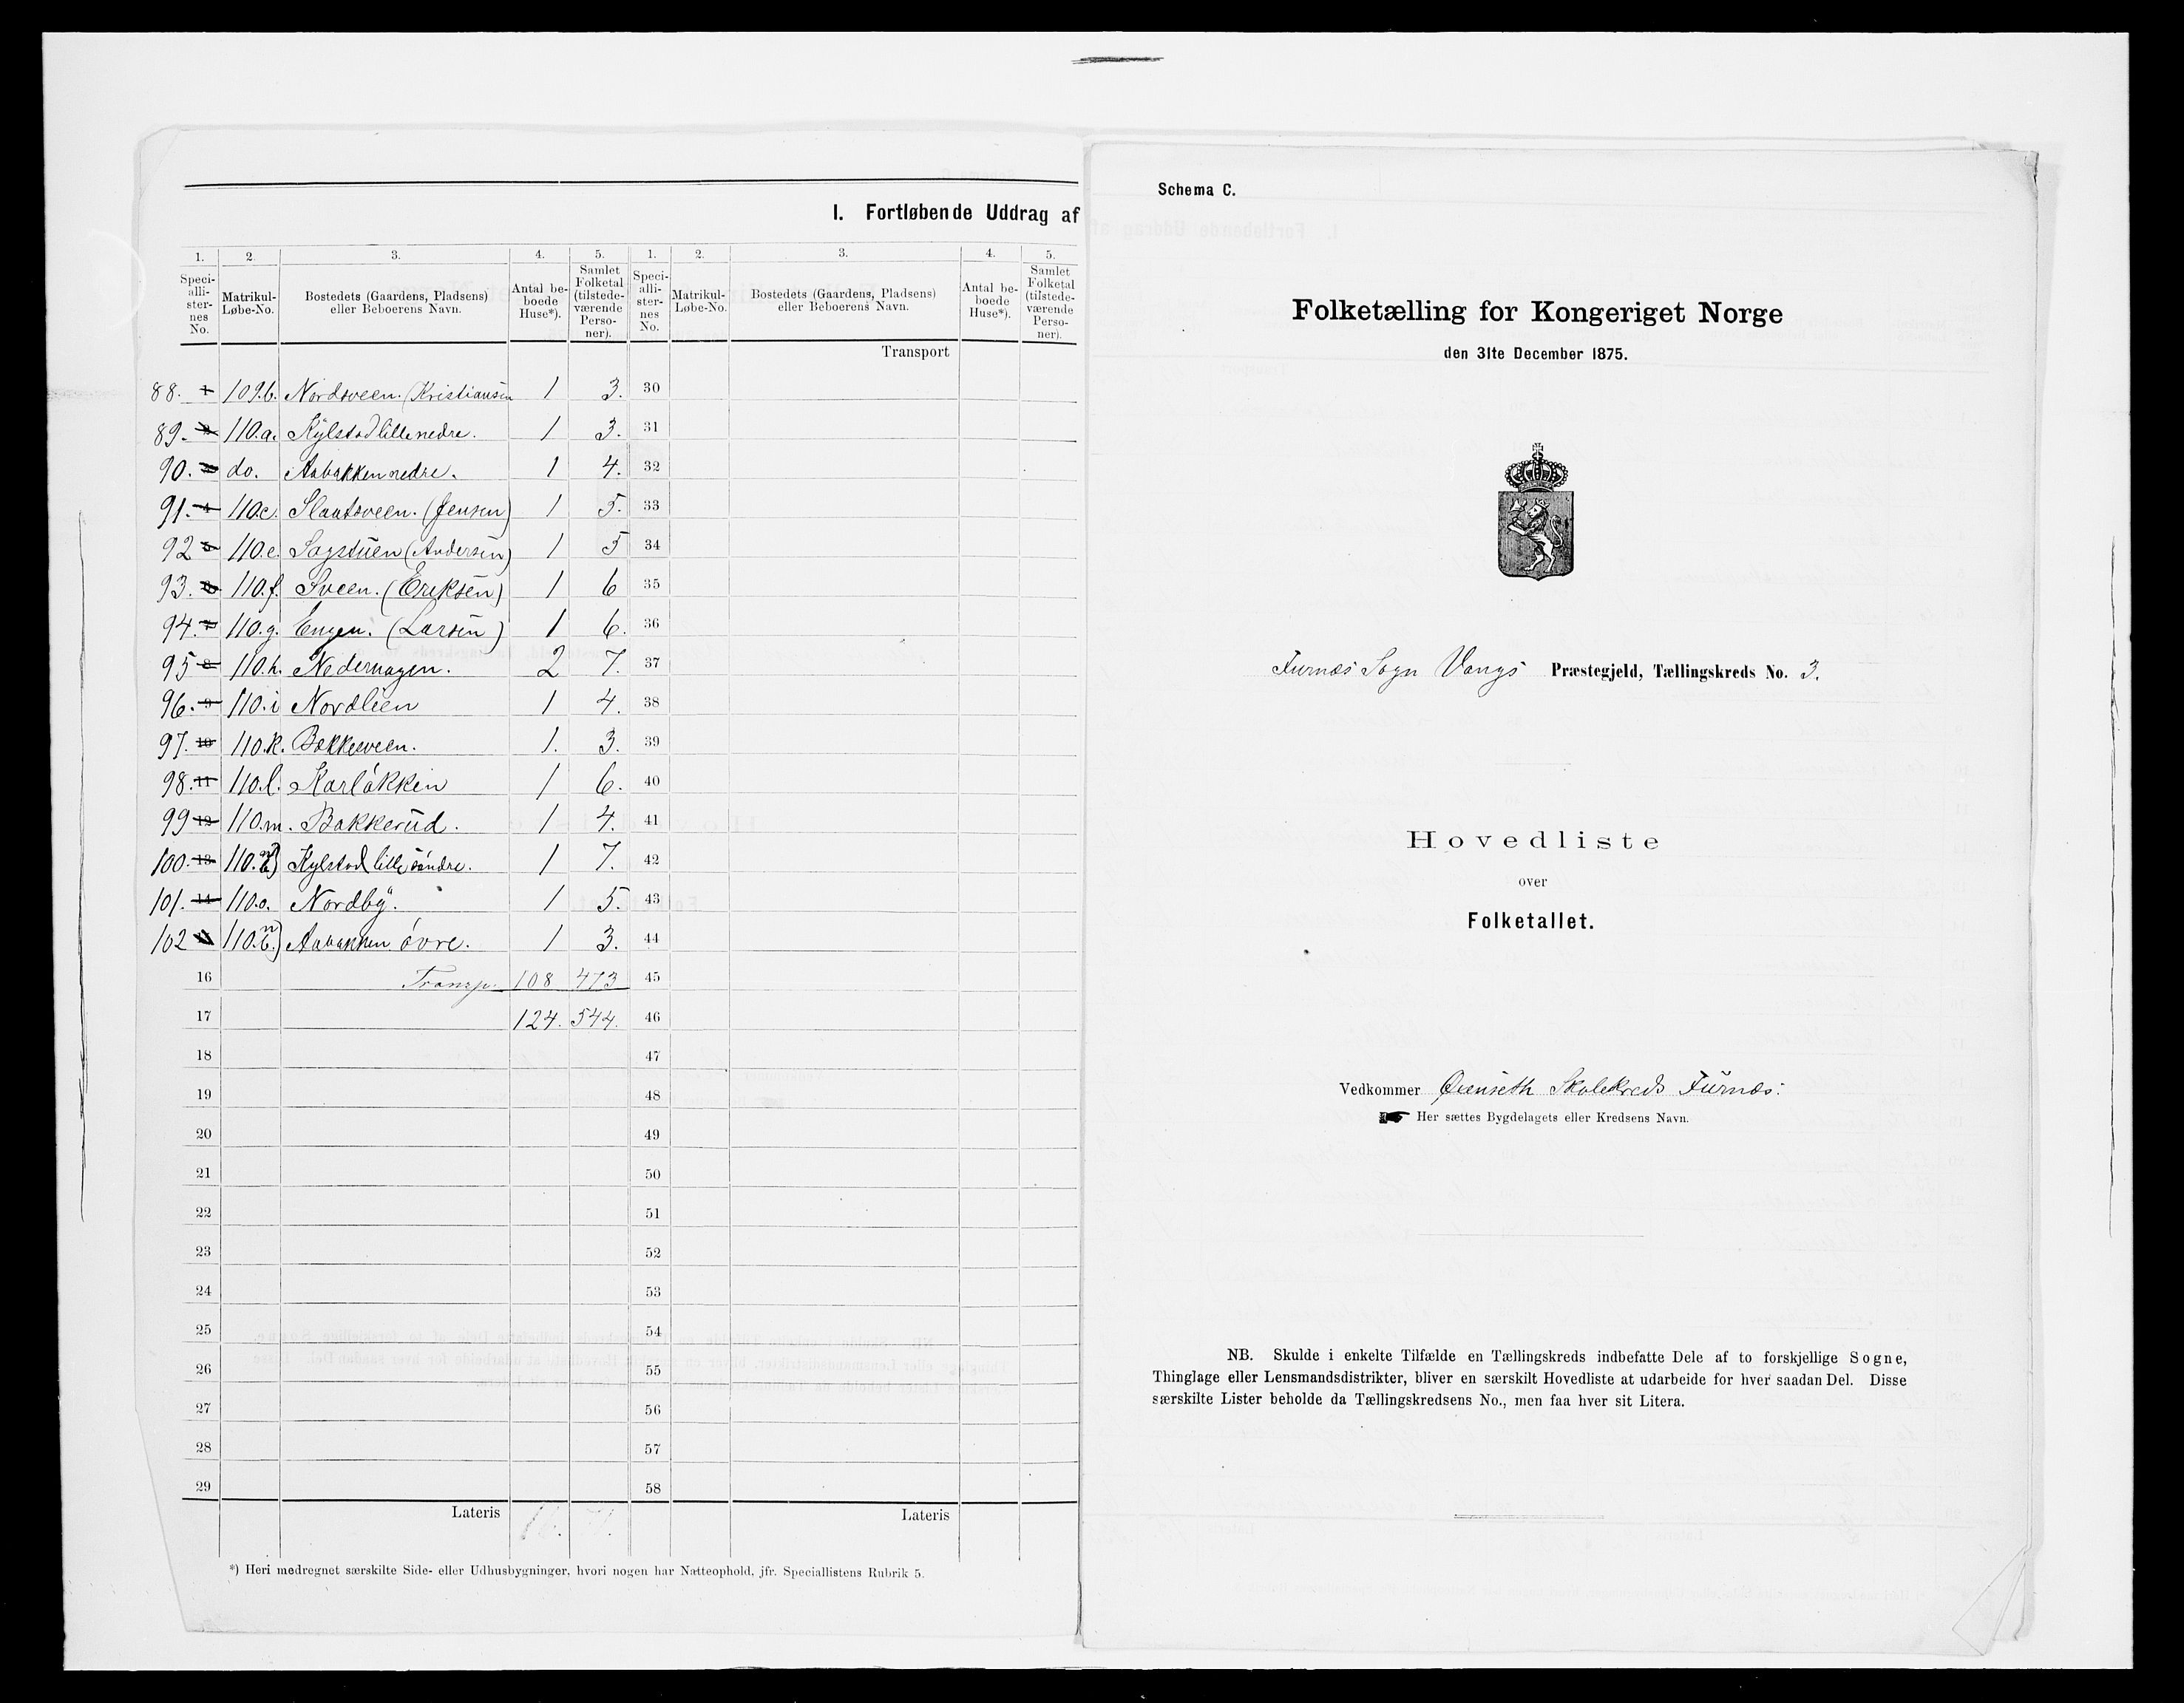 I. Fortløbende Uddrag af
1. 2. 3. 4. 5. 1. 2. 3. 4. 5.
Speciallisternes No. Matrikul-Løbe-No. Bostedets (Gaardens, Pladsens) eller Beboerens Navn. Antal beboede Huse*). Samlet Folketal (tilstedeværende Personer). Speciallisternes No. Matrikul-Løbe-No. Bostedets (Gaardens, Pladsens) eller Beboerens Navn. Antal beboede Huse*). Samlet Folketal (tilstedeværende Personer).
Transport
88. 1 109.b. Nordsveen. (Kristiansen 1 3. 30
89. 2 110.a. Kylstad lille nedre. 1 3. 31
90. 3 do. Aabakken nedre. 1 4. 32
91. 4 110.c. Slaatsveen. (Jensen) 1 5. 33
92 5 110.e. Sagstuen (Andersen) 1 5 34
93. 6 110.f. Sveen. (Eriksen) 1 6 35
94. 7 110.g. Engen. (Larsen) 1 6. 36
95 8 110.h. Nederhagen. 2 7. 37
96. 9 110.i Nordlien 1 4. 38
97. 10 110.k. Bækkesveen. 1. 3. 39
98. 11 110.l. Karløkken 1 6. 40
99 12 110.m. Bakkerud. 1 4. 41
100. 13 110. Kylstad lille söndre. 1 7. 42
101. 14 110.o. Nordby. 1 5. 43
102 110. Aabakken övre. 1 3. 44
16 Transp. 108 473 45
17 124. 544. 46
18 47
19 48
20 49
21 50
22 51
23 52
24 53
25 54
26 55
27 56
28 57
29 58
Lateris 16. 71. Lateris
*) Heri medregnet særskilte Side- eller Udhusbygninger, hvori nogen har Natteophold, jfr. Speciallistens Rubrik 5.
Schema C.
Folketælling for Kongeriget Norge
den 31te December 1875.
Furnæs Sogn Vangs Præstegjeld, Tællingskreds No. 3.
Hovedliste
over
Folketallet.
Vedkommer Skolekreds Furnæs.
Her sættes Bygdelagets eller Kredsens Navn.
NB. Skulde i enkelte Tilfælde en Tællingskreds indbefatte Dele af to forskjellige Sogne,
Thinglage eller Lensmandsdistrikter, bliver en særskilt Hovedliste at udarbeide for hver saadan Del. Disse
særskilte Lister beholde da Tællingskredsens No., men faa hver sit Litera.